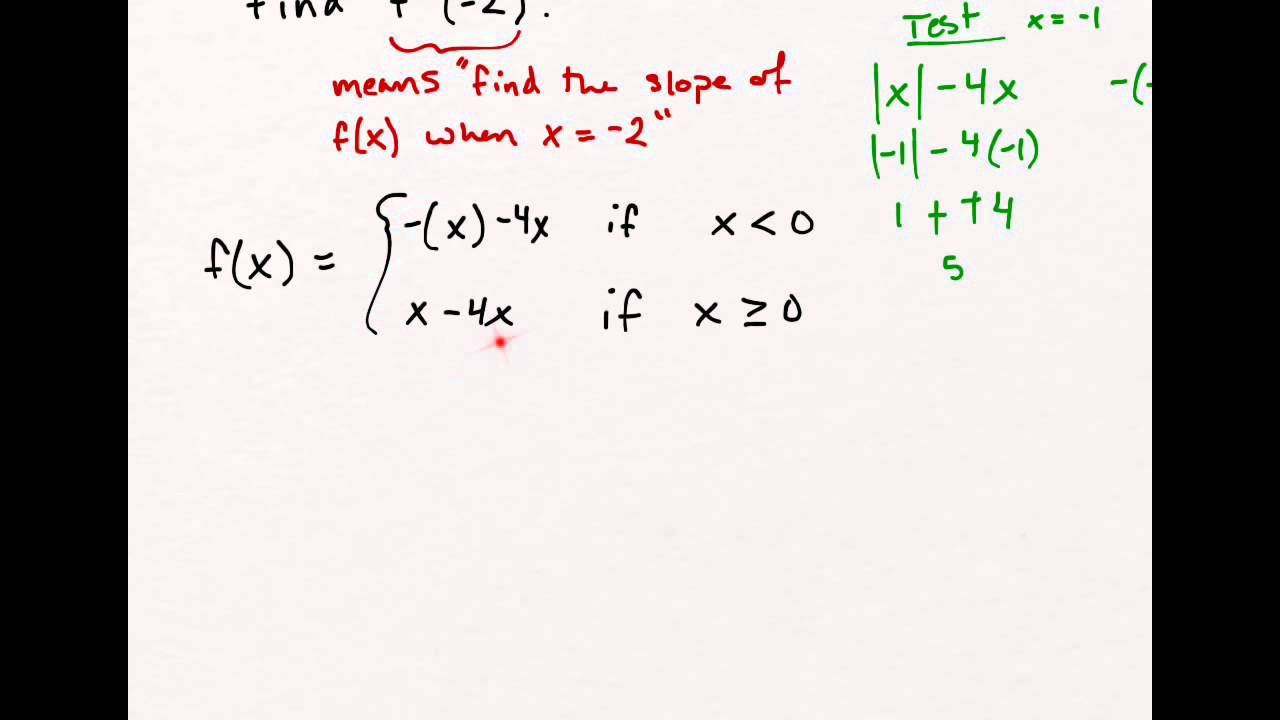 find f (-2).
means "find the slope of
f(x) when x = -2"
f(x) = { -(x) - 4x if x < 0
x - 4x if x ≥ 0
Test x = -1
|x| - 4x -(-
|-1| - 4(-1)
1 + +4
5